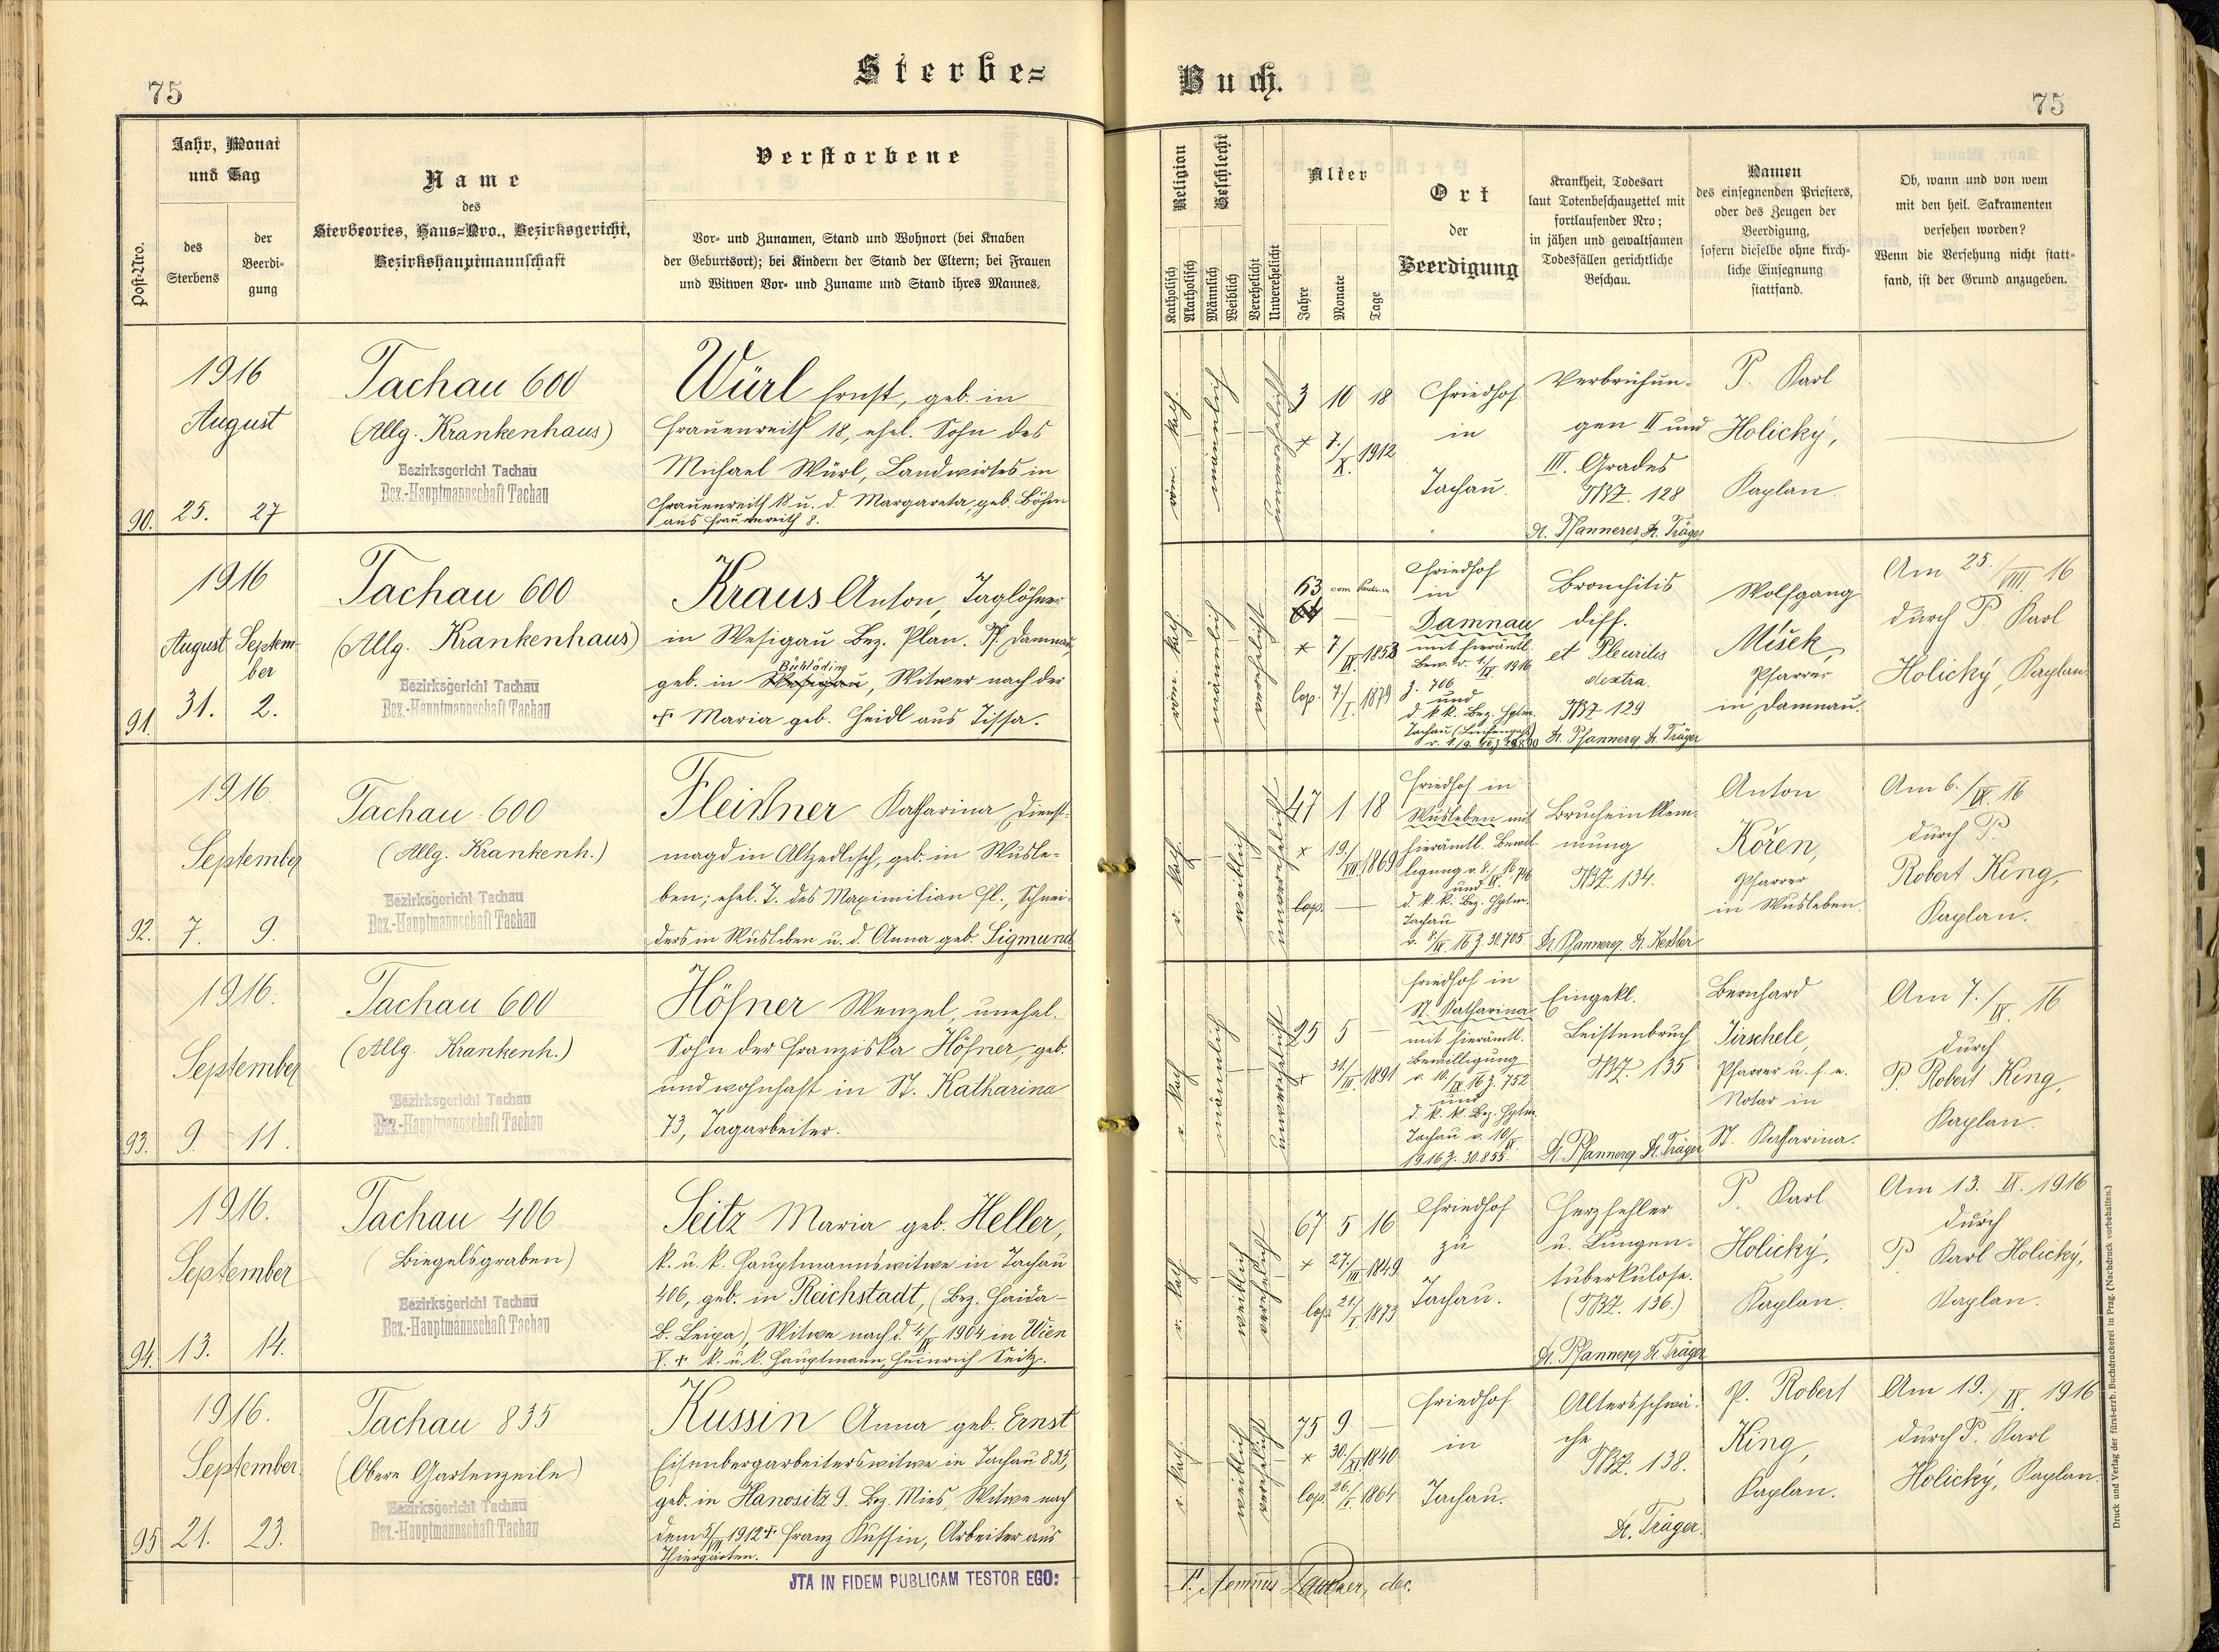 75
Sterbe=
Jahr, Monat
und Tag
Post-Nro.
des
Sterbens
der
Beerdi=
gung
Name
des
Sterbeortes, Haus=Nro., Bezirksgericht,
Bezirkshauptmannschaft
Verstorbene
Vor- und Zunamen, Stand und Wohnort (bei Knaben
der Geburtsort); bei Kindern der Stand der Eltern; bei Frauen
und Witwen Vor- und Zuname und Stand ihres Mannes.
1916
August
90. 25. 27
Tachau 600
(Allg. Krankenhaus)
Bezirksgericht Tachau
Bez.-Hauptmannschaft Tachau
Würl Ernst, geb. in
Frauenreith 18, ehel. Sohn des
Michael Würl, Landwirtes in
Frauenreith 18 u. d. Margareta, geb. Böhm
aus Frauenreith 8.
1916
August Septem-
ber
91. 31. 2.
Tachau 600
(Allg. Krankenhaus)
Bezirksgericht Tachau
Bez.-Hauptmannschaft Tachau
Kraus Anton, Taglöhner
in Wesigau Bez. Plan. Pf. Damnau,
geb. in Wesigau, Witwer nach der
† Maria geb. Heidl aus Tissa.
1916.
September
92. 7. 9.
Tachau 600
(Allg. Krankenh.)
Bezirksgericht Tachau
Bez.-Hauptmannschaft Tachau
Fleißner Katharina, Dienst-
magd in Altzedlisch, geb. in Wusle-
ben; ehel. T. des Maximilian Fl., Schnei-
ders in Wusleben u. d. Anna geb. Sigmund
1916.
September
93. 9. 11.
Tachau 600
(Allg. Krankenh.)
Bezirksgericht Tachau
Bez.-Hauptmannschaft Tachau
Höfner Wenzel, unehel.
Sohn der Franziska Höfner, geb.
und wohnhaft in St. Katharina
73, Tagarbeiter.
1916.
September
94. 13. 14.
Tachau 406
(Biegelsgraben)
Bezirksgericht Tachau
Bez.-Hauptmannschaft Tachau
Seitz Maria geb. Heller,
k. u. k. Hauptmannswitwe in Tachau
406, geb. in Reichstadt, (Bez. Haida-
B. Leipa), Witwe nach d. 4/IV 1904 in Wien
V. † k. u. k. Hauptmann, Heinrich Seitz.
1916.
September
95 21. 23.
Tachau 835
(Obere Gartenzeile)
Bezirksgericht Tachau
Bez.-Hauptmannschaft Tachau
Kussin Anna geb. Ernst
Eisenbergarbeiterswitwe in Tachau 835,
geb. in Hanositz 9. Bez. Mies, Witwe nach
dem 5/VII 1912 † Franz Kussin, Arbeiter aus
Thiergarten.
JTA IN FIDEM PUBLICAM TESTOR EGO:
Buch.
75
Religion
Geschlecht
Katholisch
Akatholisch
Männlich
Weiblich
Verehelicht
Unverehelicht
Alter
Jahre
Monate
Tage
Ort
der
Beerdigung
Krankheit, Todesart
laut Totenbeschauzettel mit
fortlaufender Nro;
in jähen und gewaltsamen
Todesfällen gerichtliche
Beschau.
Namen
des einsegnenden Priesters,
oder des Zeugen der
Beerdigung,
sofern dieselbe ohne kirch-
liche Einsegnung
stattfand.
Ob, wann und von wem
mit den heil. Sakramenten
versehen worden?
Wenn die Versehung nicht statt=
fand, ist der Grund anzugeben.
röm. kath.
männlich
unverehelicht
3 10 18
* 7./X. 1912
Friedhof
in
Tachau.
Verbrühun-
gen II und
III. Grades
TBZ. 128
Dr. Pfannerer, Dr. Träger
P. Karl
Holický,
Kaplan.
röm. kath.
männlich
verehelicht
63
64
* 7/IX. 1853
lop. 7/I. 1879
Friedhof
in
Damnau
mit hierämtl.
Bew. v. 1/IX 1916
Z. 706
und
d. k.k. Bez. Hptm.
Tachau
Bronchitis
diff.
et Pleuritis
dextra.
TBZ 129
Dr. Pfannerer, Dr. Träger
Wolfgang
Mišek,
Pfarrer
in Damnau.
Am 25./VIII 16
durch P. Karl
Holický, Kaplan.
r. kath.
weiblich
unverehelicht
47 1 18
* 19./VII 1869
lop. —
Friedhof in
Wusleben mit
hierämtl. Bewil-
ligung
und
d. k. k. Bez. Hptm.
Tachau
v. 8/IX 16 Z. 30.705
Brucheinklem-
mung
TBZ. 134.
Dr. Pfannerer, Dr. Keßler
Anton
Kořen,
Pfarrer
in Wusleben.
Am 6./IX. 16
durch P.
Robert King,
Kaplan.
r. kath.
männlich
unverehelicht
25 5 —
* 31/III. 1891
Friedhof in
St. Katharina
mit hierämtl.
Bewilligung
v. 10./IX 16 Z. 752
und
d. k. k. Bez. Hptm.
Tachau v. 10/IX
1916 Z. 30.855.
Eingekl.
Leistenbruch
TBZ. 135
Dr. Pfannerer, Dr. Träger
Bernhard
Tirschele,
Pfarrer u. f. e.
Notar in
St. Katharina.
Am 7./IX. 16
durch
P. Robert King,
Kaplan.
r. kath.
weiblich
verehelicht
67 5 16
* 27./III 1849
lop. 21./I. 1873
Friedhof
zu
Tachau.
Herzfehler
u. Lungen-
tuberkulose.
(TBZ. 136.)
Dr. Pfannerer, Dr. Träger
P. Karl
Holický,
Kaplan.
Am 13. IX. 1916
durch
P. Karl Holický,
Kaplan.
r. kath.
weiblich
verehelicht
75 9 —
* 30./XI. 1840
lop. 26./I. 1864
Friedhof
in
Tachau.
Altersschwä-
che
TBZ. 138.
Dr. Träger.
P. Robert
King,
Kaplan.
Am 19./IX. 1916
durch P. Karl
Holický, Kaplan.
Druck und Verlag der fürst-erzb. Buchdruckerei in Prag. (Nachdruck vorbehalten.)